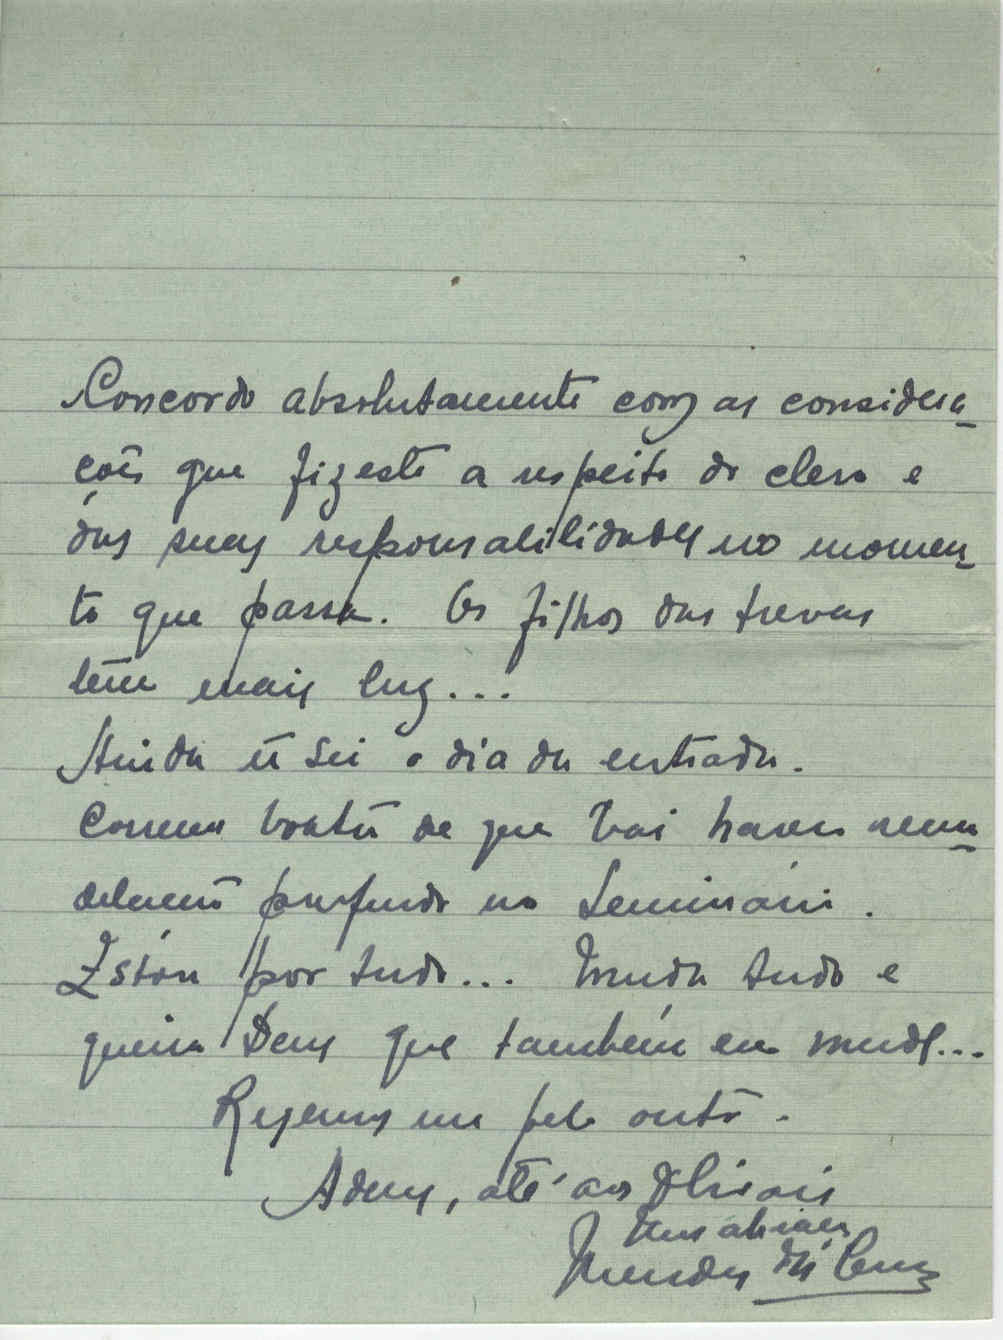 Concordo absolutamente com as considera-
ções que fizeste a respeito do clero e
das suas responsabilidades no momen-
to que passa. Os filhos das trevas
têm mais luz...
Ainda ñ sei o dia da entrada.
Correm boatos de que vai haver remo-
delação profunda no Seminário.
Estou por tudo... Muda tudo e
queira Deus que também eu mude...
Rezemos um pelo outro.
Adeus, até aos
Um abraço
Mendes da Cruz